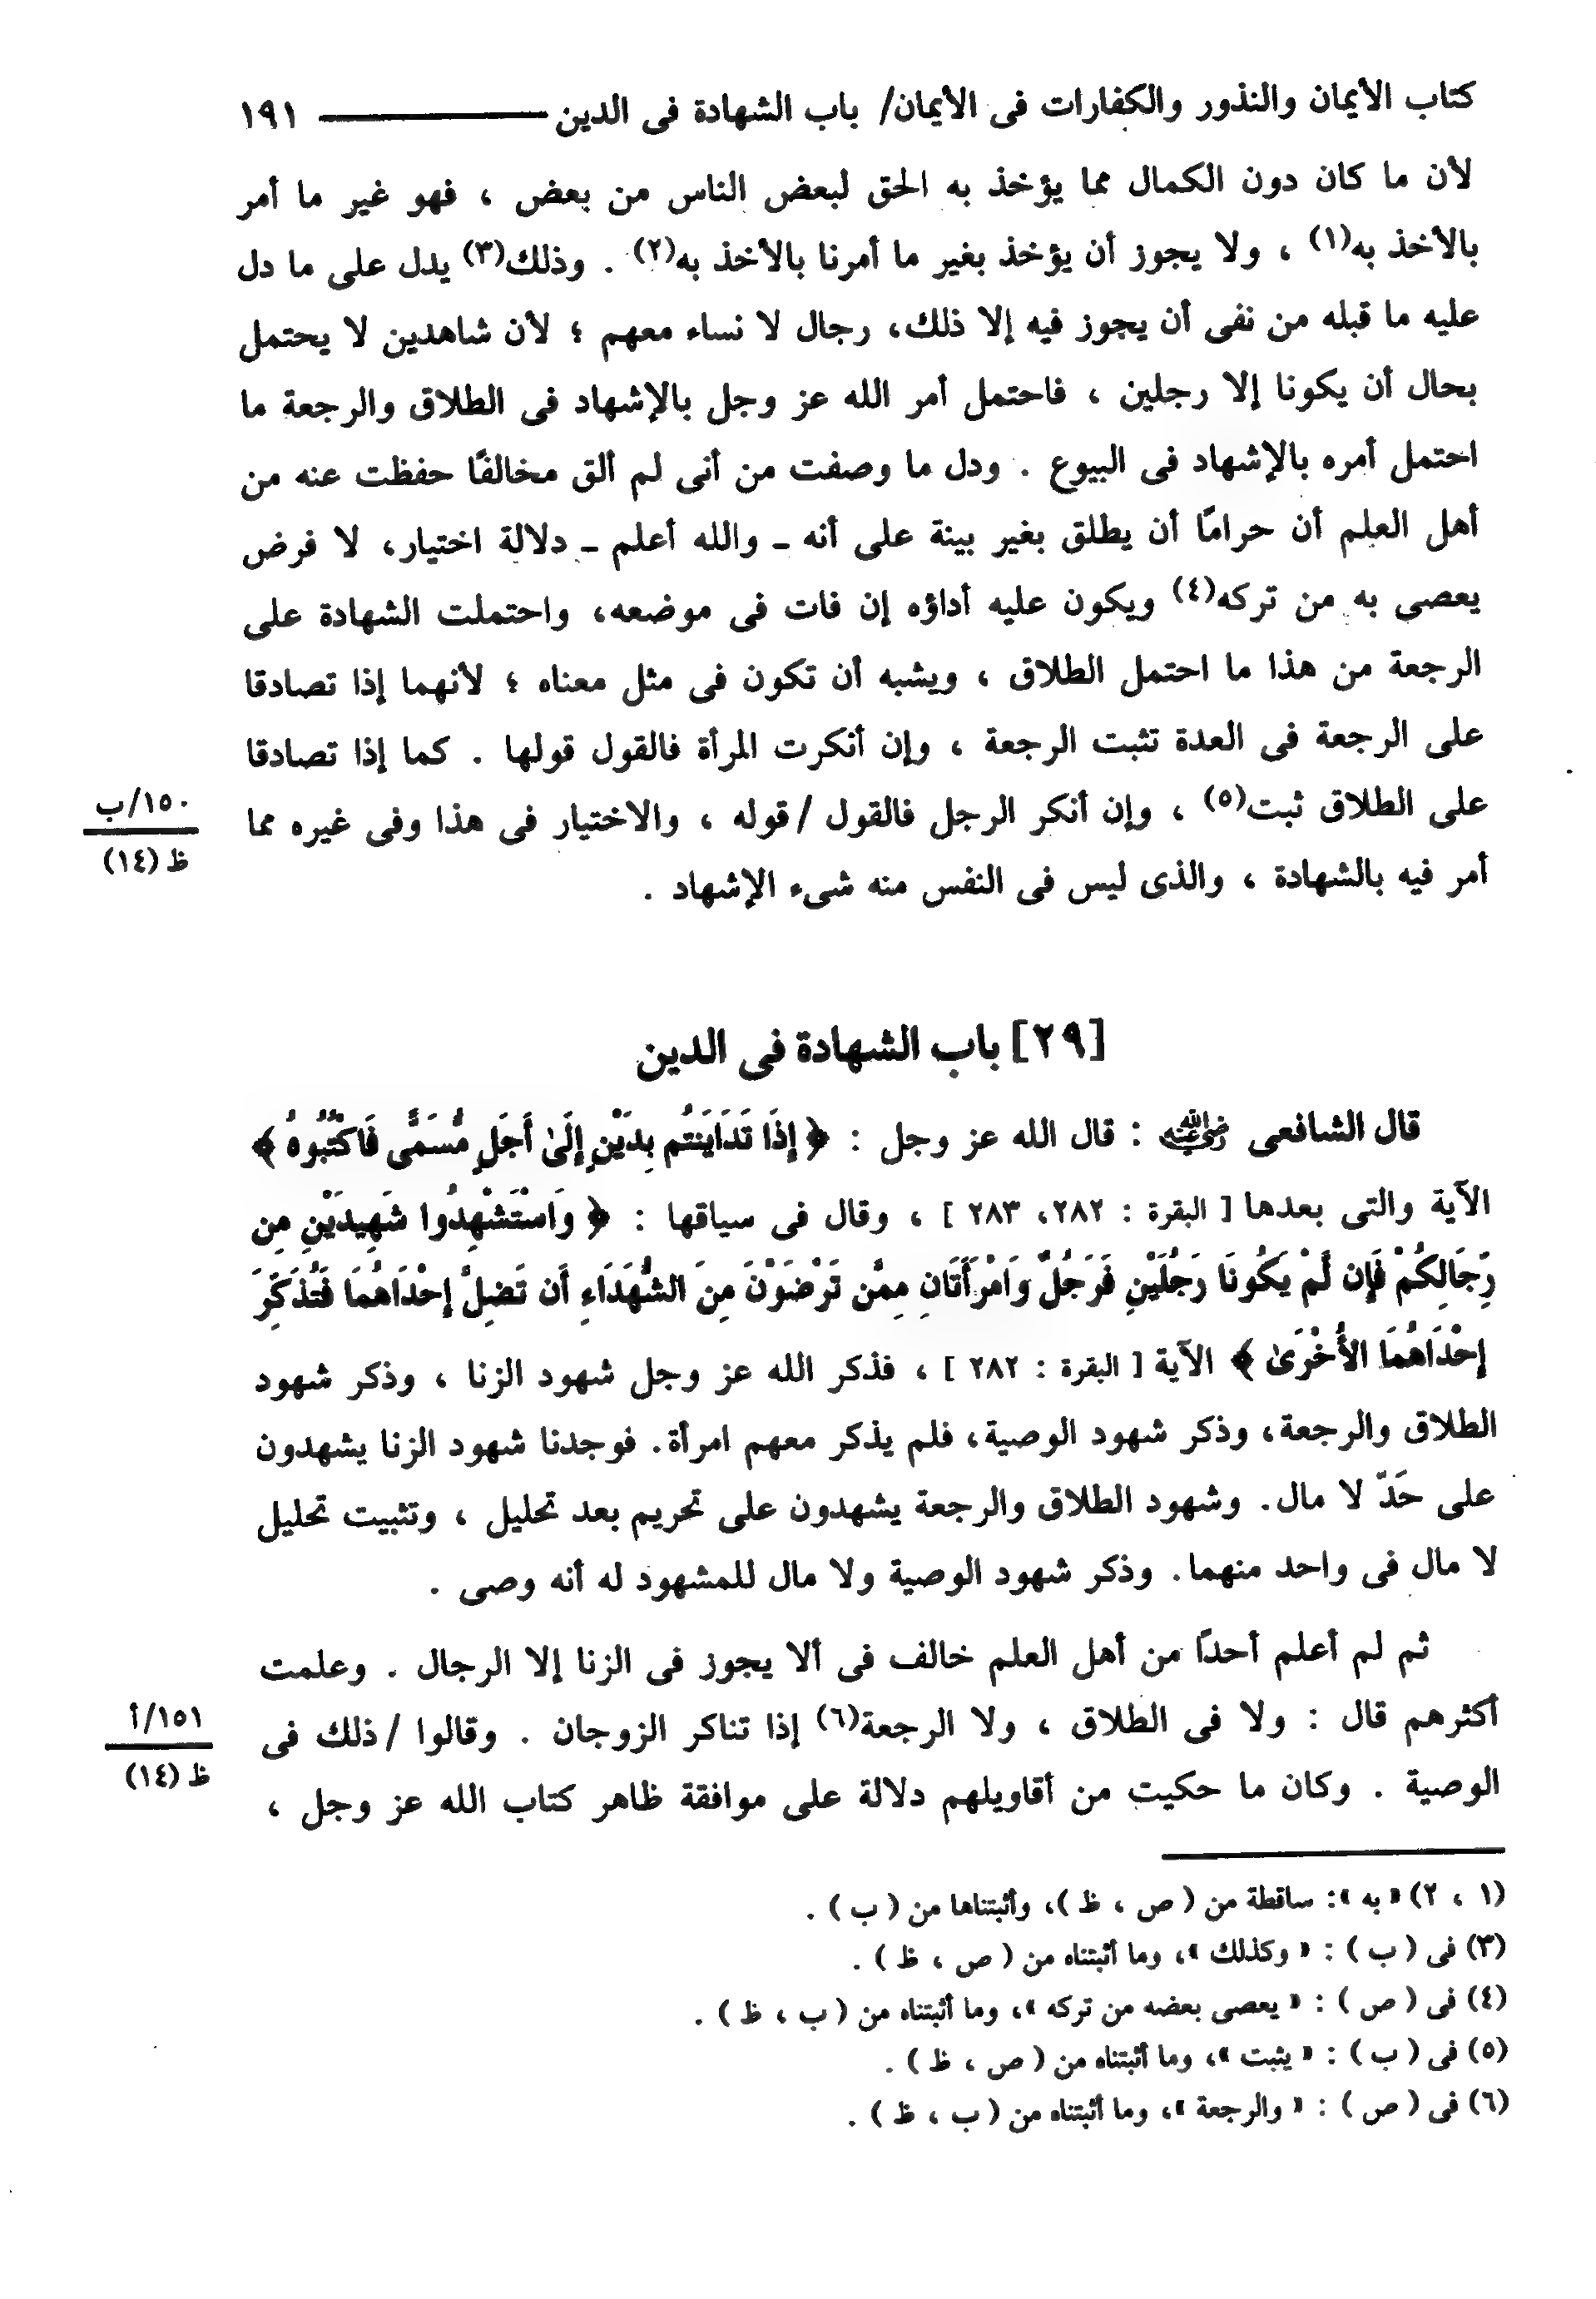 كتاب الأيمان والنذور والكفارات فى الأيمان/ باب الشهادة فى الدين ــــــــــ ١٩١
لأن ما كان دون الكمال مما يؤخذ به الحق لبعض الناس من بعض ، فهو غير ما أمر
بالأخذ به(١) ، ولا يجوز أن يؤخذ بغير ما أمرنا بالأخذ به(٢) . وذلك(٣) يدل على ما دل
عليه ما قبله من نفى أن يجوز فيه إلا ذلك، رجال لا نساء معهم ؛ لأن شاهدين لا يحتمل
بحال أن يكونا إلا رجلين ، فاحتمل أمر الله عز وجل بالإشهاد فى الطلاق والرجعة ما
احتمل أمره بالإشهاد فى البيوع . ودل ما وصفت من أنى لم ألق مخالفًا حفظت عنه من
أهل العلم أن حرامًا أن يطلق بغير بينة على أنه ـ والله أعلم ـ دلالة اختيار، لا فرض
يعصى به من تركه(٤) ويكون عليه أداؤه إن فات فى موضعه، واحتملت الشهادة على
الرجعة من هذا ما احتمل الطلاق ، ويشبه أن تكون فى مثل معناه ؛ لأنهما إذا تصادقا
على الرجعة فى العدة تثبت الرجعة ، وإن أنكرت المرأة فالقول قولها . كما إذا تصادقا
على الطلاق ثبت(٥) ، وإن أنكر الرجل فالقول /قوله ، والاختيار فى هذا وفى غيره مما
١٥٠/ب
ظ (١٤)
أمر فيه بالشهادة ، والذى ليس فى النفس منه شىء الإشهاد .
[٢٩] باب الشهادة فى الدين
قال الشافعى رضي الله عنه : قال الله عز وجل : ﴿ إِذَا تَدَايَنتُم بِدَيْنٍ إِلَىٰ أَجَلٍ مُّسَمًّى فَاكْتُبُوهُ ﴾
الآية والتى بعدها [ البقرة : ٢٨٢، ٢٨٣ ] ، وقال فى سياقها : ﴿ وَاسْتَشْهِدُوا شَهِيدَيْنِ مِن
رِّجَالِكُمْ فَإِن لَّمْ يَكُونَا رَجُلَيْنِ فَرَجُلٌ وَامْرَأَتَانِ مِمَّن تَرْضَوْنَ مِنَ الشُّهَدَاءِ أَن تَضِلَّ إِحْدَاهُمَا فَتُذَكِّرَ
إِحْدَاهُمَا الأُخْرَىٰ ﴾ الآية [ البقرة : ٢٨٢ ] ، فذكر الله عز وجل شهود الزنا ، وذكر شهود
الطلاق والرجعة، وذكر شهود الوصية، فلم يذكر معهم امرأة. فوجدنا شهود الزنا يشهدون
على حَدّ لا مال. وشهود الطلاق والرجعة يشهدون على تحريم بعد تحليل ، وتثبيت تحليل
لا مال فى واحد منهما. وذكر شهود الوصية ولا مال للمشهود له أنه وصى .
ثم لم أعلم أحدًا من أهل العلم خالف فى ألا يجوز فى الزنا إلا الرجال . وعلمت
أكثرهم قال : ولا فى الطلاق ، ولا الرجعة(٦) إذا تناكر الزوجان . وقالوا /ذلك فى
١٥١/أ
ظ (١٤)
الوصية . وكان ما حكيت من أقاويلهم دلالة على موافقة ظاهر كتاب الله عز وجل ،
(١ ، ٢) « به »: ساقطة من ( ص ، ظ )، وأثبتناها من ( ب ) .
(٣) فى ( ب ) : « وكذلك »، وما أثبتناه من ( ص ، ظ ) .
(٤) فى ( ص ) : « يعصى بعضه من تركه »، وما أثبتناه من ( ب ، ظ ) .
(٥) فى ( ب ) : « يثبت »، وما أثبتناه من ( ص ، ظ ) .
(٦) فى ( ص ) : « والرجعة »، وما أثبتناه من ( ب ، ظ ) .